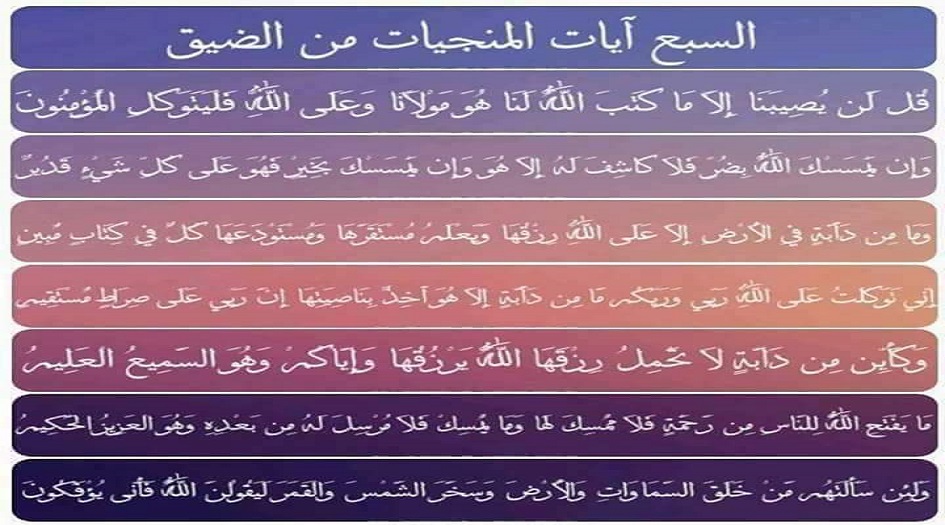 السبع آيات المنجيات من الضيق
قُل لَن يُصِيبَنَا إِلاَ مَا كَتَبَ اللَّهُ لَنَا هُوَ مَوْلاَنَا وَعَلَى اللَّهِ فَليَتَوَكلِ المُؤْمِنُونَ
وَإن يَمسَسْكَ اللَّهُ بِضُرّ فَلا كَاشِفَ لَهُ إِلا هُوَ وَإن يَمسَسْكَ بَخِيرْ فَهُوَ عَلى كلِ شَيْءٍ قَدُيرٌ
وَمَا مِن دَآبَةٍ فِي الأَرْضِ إِلاَ عَلَى اللَّهِ رِزْقُهَا وَيَعْلَمُ مُسْتَقَرَهَا وَمُسْتَوْدَعَهَا كُلٌ فِي كِتَابِ مُبِينِ
إِنِي تَوَكلتُ عَلَى اللَّهِ رَبِي وَرَبِكُم مَا مِن دَآبَةٍ إِلا هُوَ آخِذٌ بِنَاصِيَتِهَا إِنَ رَبِي عَلَى صِرَاطٍ مُسْتَقِيمٍ
وَكَأَيِن مِن دَآبَةٍ لاَ تَحْمِلُ رِزْقَهَا اللَّهُ يَرْزُقُهَا وَإِيَاكُمْ وَهُوَ السَمِيعُ العَلِيمُ
مَا يَفْتَحِ اللَّهُ لِلنَاسِ مِن رَحْمَةٍ فَلا مُمْسِكَ لَهَا وَمَا يُمْسِكْ فَلاَ مُرْسِلَ لَهُ مِن بَعْدِهِ وَهُوَ العَزِيزُ الحَكِيمُ
وَلَئِن سَأَلتَهُم مَنْ خَلَقَ السَمَاوَاتِ وَالأَرْضَ وَسَخَرَ الشَمْسَ وَالقَمَرَ لَيَقُولُنَ اللَّهُ فَأَنَى يُؤْفَكُونَ